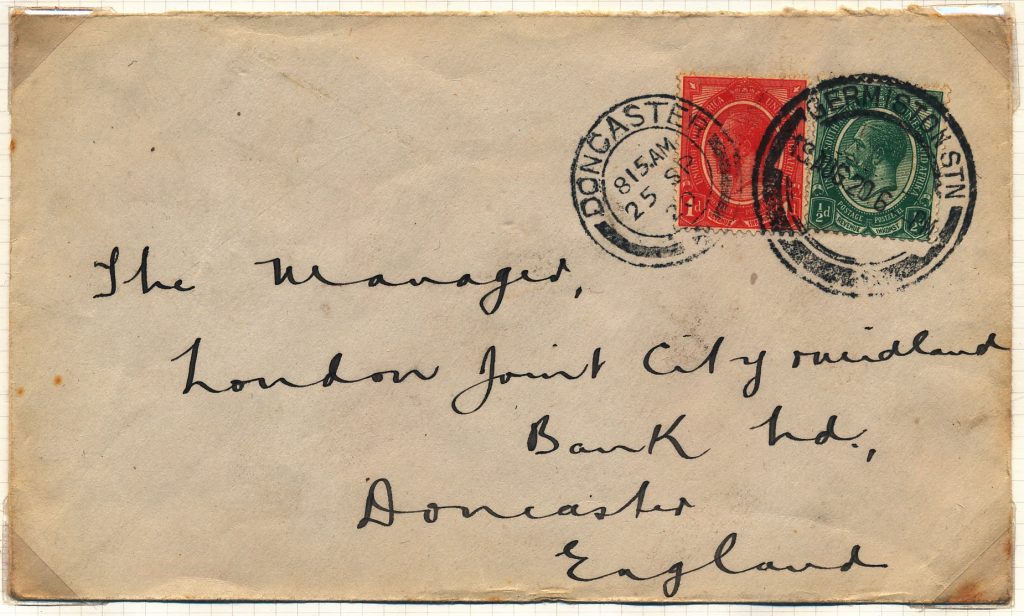 DONCASTER
815.AM
25 SP
GERMISTON STN
1d
½d
½d
POSTAGE
REVENUE
The Manager,
London Joint City Midland
Bank Ltd.,
Doncaster
England